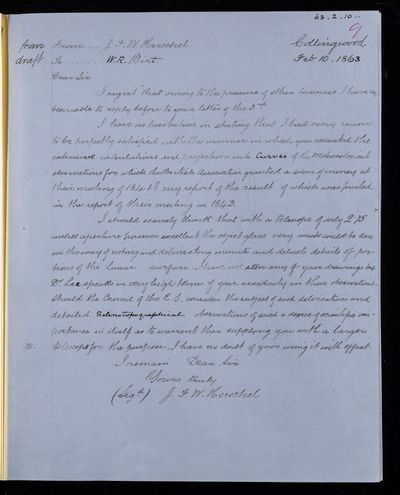 63.2.10..
9
from From.... J. F. W. Herschel Collingwood
draft To ...... W. R. Birt Feb 10. 1863
Dear Sir
I regret that owing to the pressure of other business I have only
been able to reply before to your letter of the 3rd
I have no hesitation in stating that I had every reason
to be perfectly satisfied with the manner in which you executed the
extensive calculations and projections into Curves of the Meteorological
observations for which the British Association granted a sum of money at
their meeting of 184 my report of the result of which was printed
in the report of their meeting in 1843.
I should scarcely think that with a telescope of only 2,75
inches aperture however excellent the object glass very much could be done
in the way of noting and delineating minute and delicate details of por-
tions of the lunar surface. I have not seen any of your drawings but
Dr. Lee speaks in very high terms of your assiduity in these observations.
Should the Council of the R. S. consider the subject of such delineations and
detailed Selenotopographical observations of such a degree of scientific im-
portance in itself as to warrant their supplying you with a larger
telescope for the purpose, I have no doubt of yours using it with effect.
I remain Dear Sir
Yours truly
(Sigd) J. F. W. Herschel